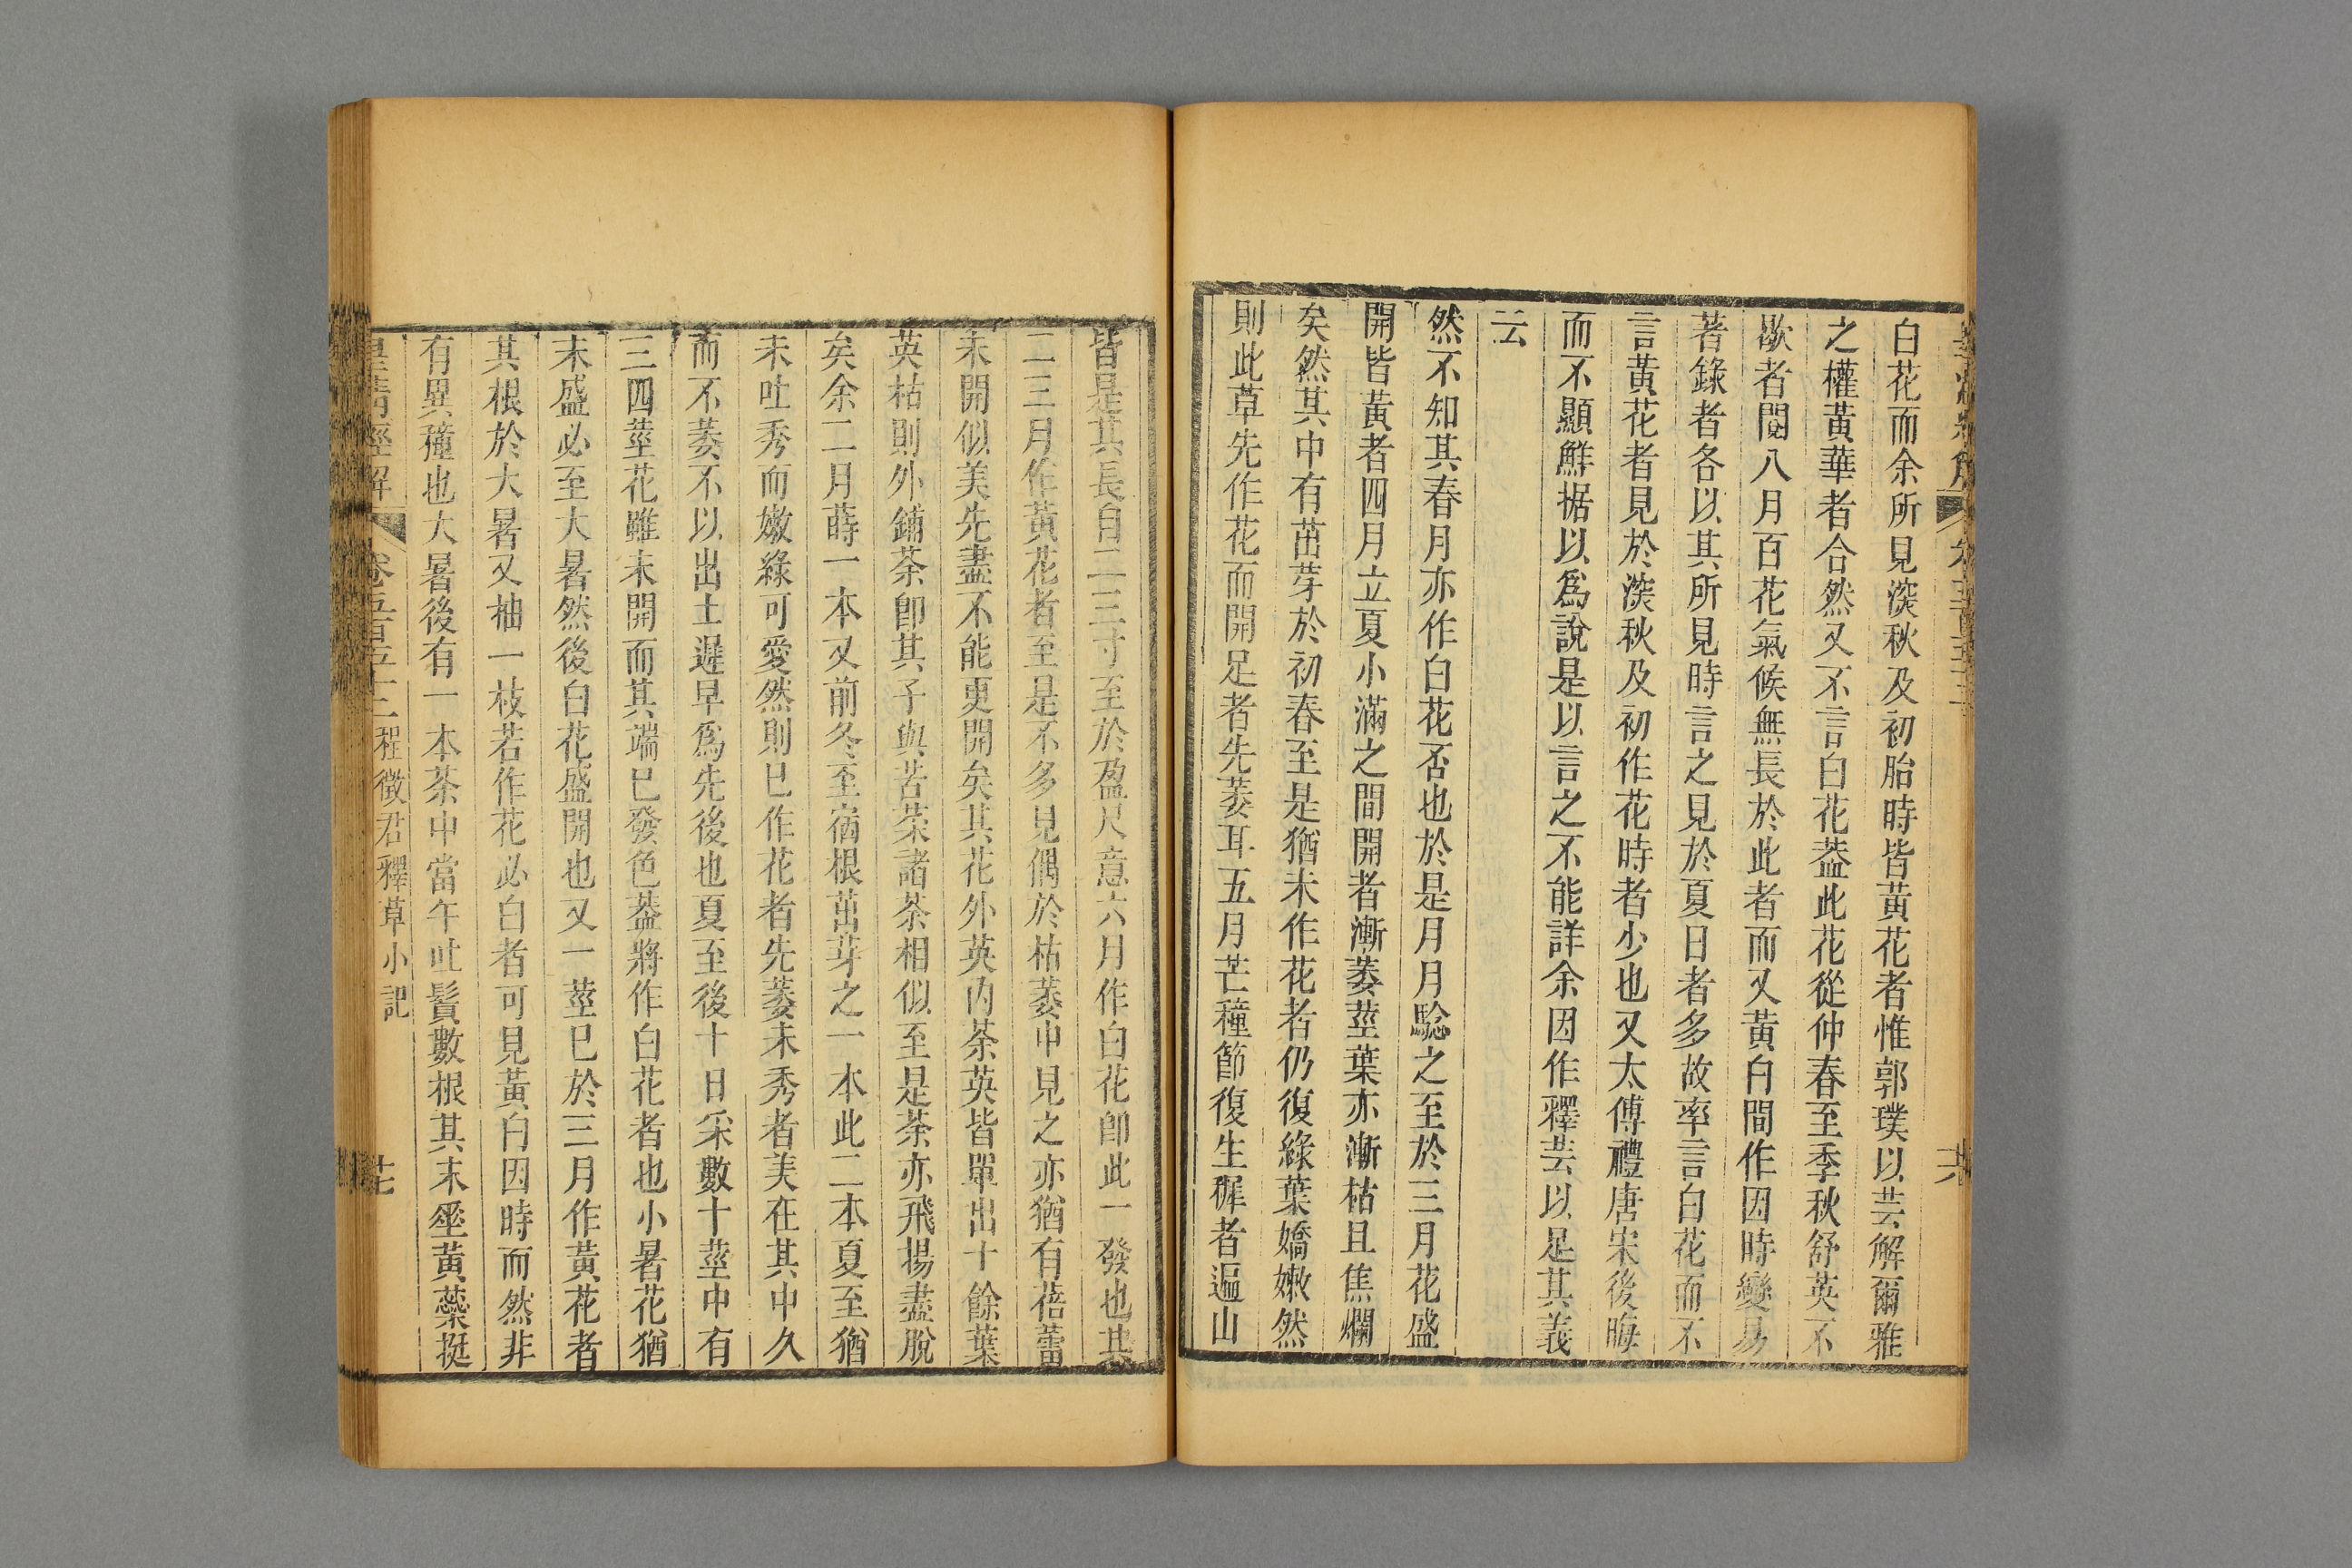 白花而余所見㴱秋及初胎時皆黃花者惟郭璞以芸解爾雅
之權黃華者合然又不言白花葢此花從仲春至季秋舒英不
歇者閱八月百花氣候無長於此者而又黃白間作因時變易
著錄者各以其所見時言之見於夏日者多故率言白花而不
言黃花者見於㴱秋及初作花時者少也又太傅禮唐宋後晦
而不顯鮮据以爲說是以言之不能詳余因作釋芸以足其義
云
然不知其春月亦作白花否也於是月月騐之至於三月花盛
開皆黃者四月立夏小滿之間開者漸萎莖葉亦漸枯且焦爛
矣然其中有茁芽於初春至是猶未作花者仍復綠葉嬌嫩然
則此草先作花而開足者先萎耳五月芒種節復生穉者遍山
皆是其長自二三寸至於盈尺意六月作白花卽此一發也其
二三月作黃花者至是不多見偶於枯萎中見之亦猶有蓓蕾
未開似美先盡不能更開矣其花外英內荼英皆單出十餘葉
英枯則外鋪荼卽其子與苦菜諸荼相似至是荼亦飛揚盡脫
矣余二月蒔一本又前冬至宿根茁芽之一本此二本夏至猶
未吐秀而嫩綠可愛然則已作花者先萎未秀者美在其中久
而不萎不以出土遲早爲先後也夏至後十日采數十莖中有
三四莖花雖未開而其端已發色葢將作白花者也小暑花猶
未盛必至大暑然後白花盛開也又一莖已於三月作黃花者
其根於大暑又抽一枝若作花必白者可見黃白因時而然非
有異種也大暑後有一本荼中當午吐鬚數根其末坙黃蘂挺
皇清經解 卷五百五十二 程徵君釋草小記 十七